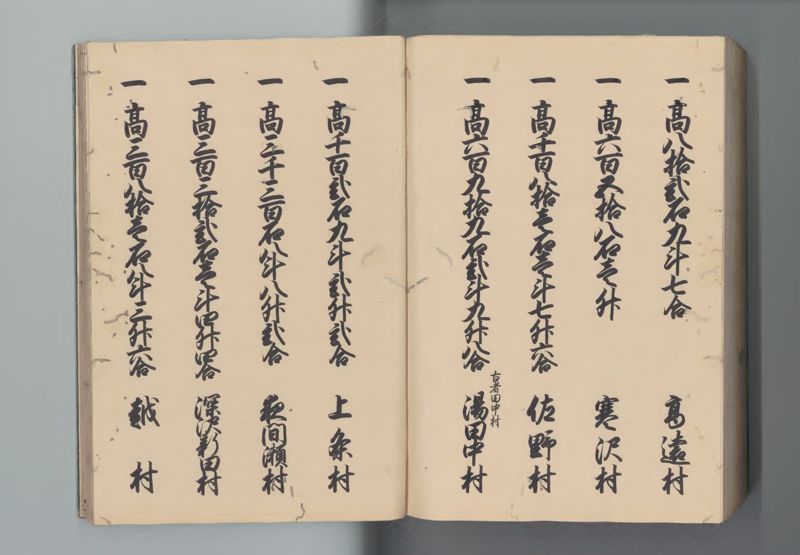 一 高八拾弐石九斗七合 高遠村
一 高六百五拾八石壱升 寒沢村
一 高千百八拾壱石壱斗七升六合 佐野村
一 高六百九拾九石弐斗九升八合 湯田中村
古者田中村
一 高千百弐石九斗弐升弐合 上条村
一 高三千三百石八斗八升弐合 夜間瀬村
一 高三百三拾弐石壱斗四升四合 深沢新田村
一 高三百八拾壱石八斗三升六合 越村